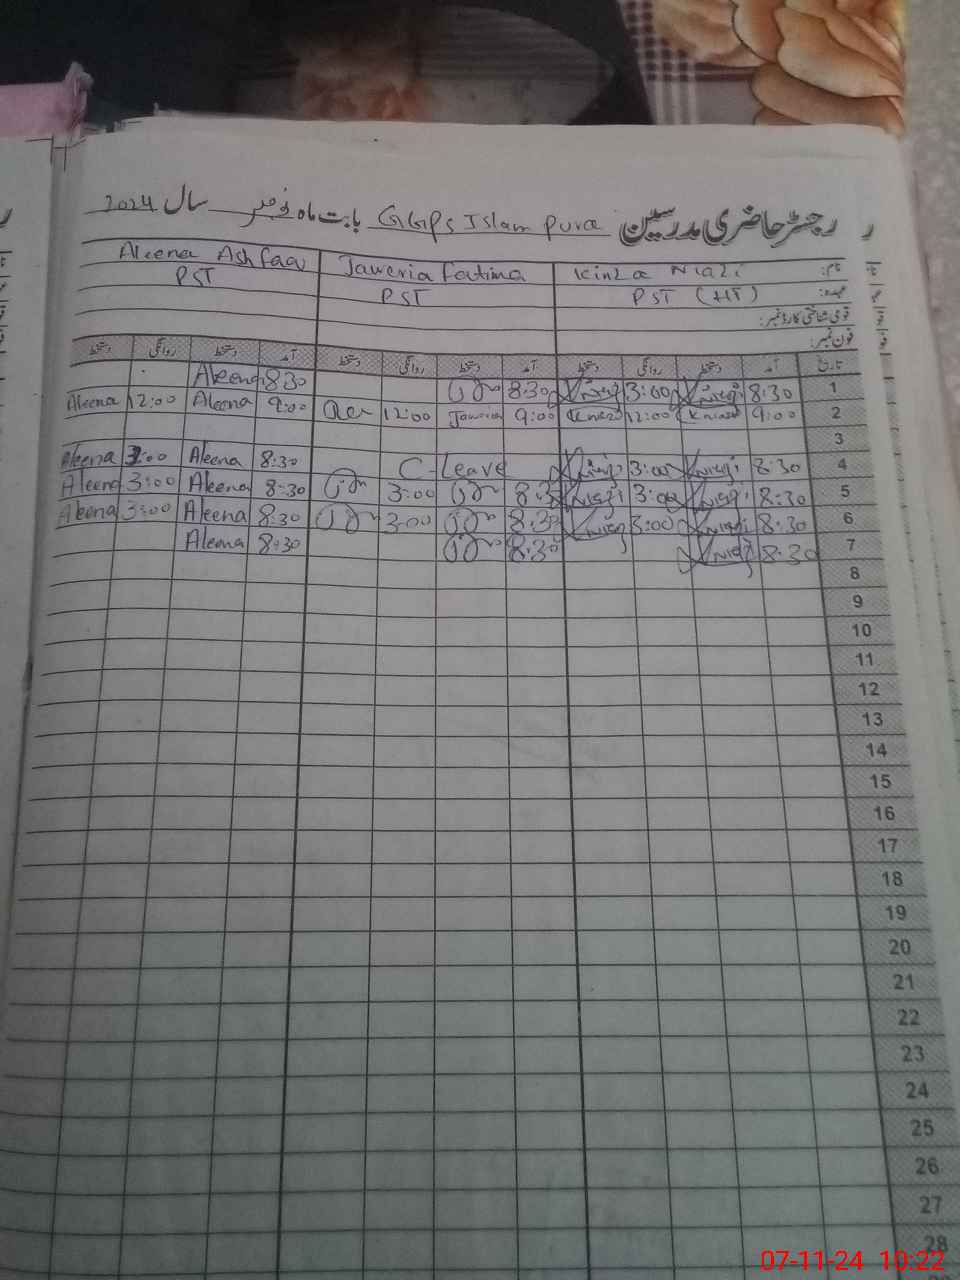 رجسٹر حاضری مدرسین GGPS Islam pura بابت ماہ نومبر سال 2024
نام: Kinza Niazi Jaweria Fatima Aleena Ashfaq
عہدہ: PST (HT) PST PST
قومی شناختی کارڈ نمبر:
فون نمبر:
تاریخ آمد دستخط روانگی دستخط آمد دستخط روانگی دستخط آمد دستخط روانگی دستخط
1 8:30 KNiazi 3:00 KNiazi 8:30 8:30 Aleena
2 9:00 Kniazi 12:00 Kniazi 9:00 Jaweria 12:00 9:00 Aleena 12:00 Aleena
3
4 8:30 KNiazi 3:00 KNiazi C-Leave 8:30 Aleena 3:00 Aleena
5 8:30 KNiazi 3:00 KNiazi 8:30 3:00 8:30 Aleena 3:00 Aleena
6 8:30 KNiazi 3:00 KNiazi 8:30 3:00 8:30 Aleena 3:00 Aleena
7 8:30 KNiazi 8:30 8:30 Aleena
8
9
10
11
12
13
14
15
16
17
18
19
20
21
22
23
24
25
26
27
28
07-11-24 10:22